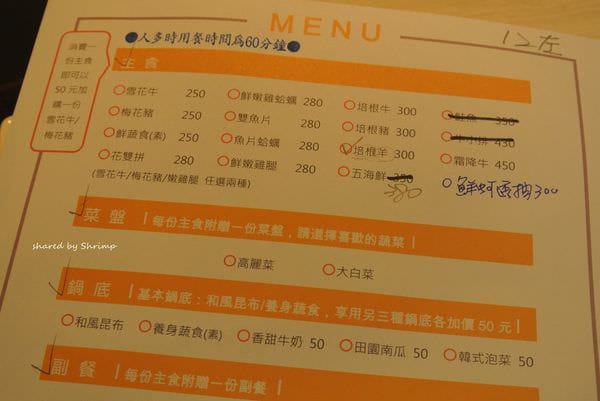 MENU
人多時用餐時間為60分鐘
12左
消費一
份主食
即可以
50元加
購一份
雪花牛/
梅花豬
主食
雪花牛 250 鮮嫩雞蛤蠣 280 培根牛 300 鮭魚 350
梅花豬 250 雙魚片 280 培根豬 300 牛小排 430
鮮蔬食(素) 250 魚片蛤蠣 280 培根羊 300 霜降牛 450
花雙拼 280 鮮嫩雞腿 280 五海鮮 350 380 鮮蚵 300
(雪花牛/梅花豬/嫩雞腿 任選兩種)
shared by Shrimp
菜盤 | 每份主食附贈一份菜盤，請選擇喜歡的蔬菜 |
高麗菜 大白菜
鍋底 | 基本鍋底：和風昆布/養身蔬食，享用另三種鍋底各加價 50 元 |
和風昆布 養身蔬食(素) 香甜牛奶 50 田園南瓜 50 韓式泡菜 50
副餐 | 每份主食附贈一份副餐 |